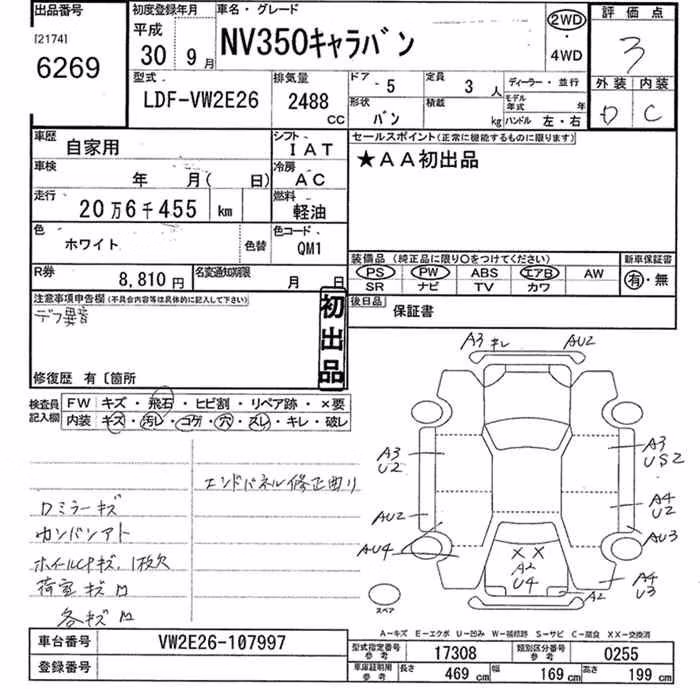 出品番号
[2174]
6269
初度登録年月
平成
30 9月
車名・グレード
NV350キャラバン
2WD
・
4WD
評価点
3
外装 内装
D C
型式
LDF-VW2E26
排気量
2488
CC
ドア・
5
定員
3人
ディーラー・並行
形状
バン
積載
kg
モデル年式 年
ハンドル 左・右
車歴
自家用
シフト
IAT
セールスポイント(正常に機能するものに限ります)
★AA初出品
車検
年 月( 日)
冷房
AC
走行
20万6千455 km
燃料
軽油
色
ホワイト
色替
色コード
QM1
装備品 (純正品に限り○をつけてください)
新車保証書
PS PW ABS エアB AW
SR ナビ TV カワ
有・無
R券
8,810円
名変通知期限
月 日
後日品
保証書
注意事項申告欄(不具合内容等は具体的に記入して下さい)
デフ異音
初出品
修復歴 有〔箇所
検査員記入欄
FW キズ・飛石・ヒビ割・リペア跡・×要
内装 キズ・汚レ・コゲ・穴・スレ・キレ・破レ
エンドパネル修正曲り
ロミラーキズ
カンバンアト
ホイールCPキズ、1枚欠
荷室キズ凹
各キズ凹
A3 キレ AU2
A3
U2
A3
US2
A4
U2
AU2
AU3
AU4
XX
A2
U4
A4
U3
A2
スペア
A-キズ E-エクボ U-凹み W-補修跡 S-サビ C-腐食 XX-交換済
車台番号
VW2E26-107997
型式指定番号
参考
17308
類別区分番号
参考
0255
登録番号
車庫証明用
参考
長さ 469 cm 幅 169 cm 高さ 199 cm